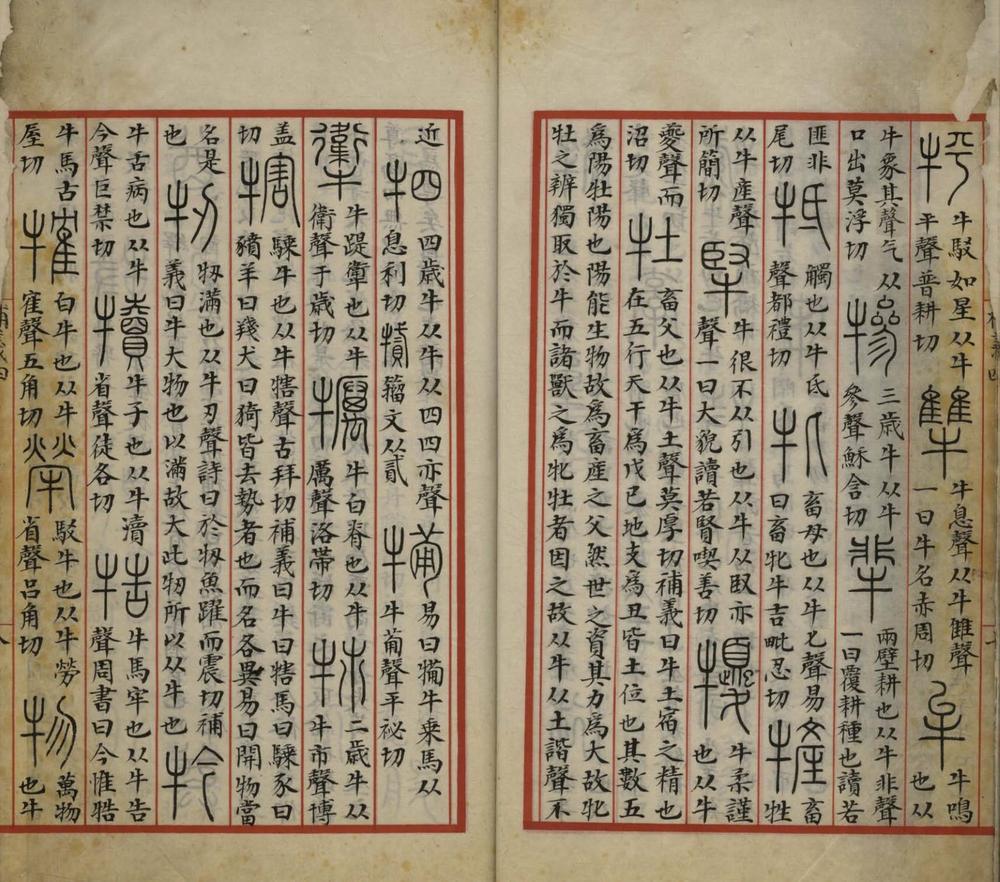 𤙓
牛駁如星从牛
平聲普耕切
犨
牛息聲从牛雔聲
一曰牛名赤周切
牟
牛鳴
也从
牛象其聲气从
口出莫浮切
犙
三歲牛从牛
參聲穌含切
𤙂
兩壁耕也从牛非聲
一曰覆耕種也讀若
匪非
尾切
牴
觸也从牛氐
聲都禮切
牝
畜母也从牛匕聲易
曰畜牝牛吉毗忍切
㹌
畜
牲
从牛產聲
所簡切
㹂
牛很不从引也从牛从臤亦
聲一曰大貌讀若賢喫善切
㹛
牛柔謹
也从牛
夒聲而
沼切
牡
畜父也从牛土聲莫厚切補義曰牛土宿之精也
在五行天干爲戊己地支爲丑皆土位也其數五
爲陽牡陽也陽能生物故爲畜産之父然世之資其力爲大故牝
牡之辨獨取於牛而諸獸之爲牝牡者因之故从牛从土諧聲不
近
牭
四歲牛从牛从四四亦聲
息利切
籀文从貳
犕
易曰犕牛乗馬从
牛𤰇聲平祕切
牛踶躗也从牛
衛聲于歲切
犡
牛白脊也从牛
厲聲洛帶切
㹃
二歲牛从
牛市聲博
盖
切
犗
騬牛也从牛犗聲古拜切補義曰牛曰犗馬曰騬豕曰
豶羊曰羠犬曰猗皆去勢者也而名各異易曰開物當
名是
也
牣
牣滿也从牛刃聲詩曰於牣魚躍而震切補
義曰牛大物也以滿故大此牣所以从牛也
牛舌病也从牛
今聲巨禁切
犢
牛子也从牛瀆
省聲徒各切
牿
牛馬牢也从牛告
聲周書曰今惟牿
牛馬古
屋切
㹊
白牛也从牛
寉聲五角切
犖
駁牛也从牛勞
省聲吕角切
物
萬物
也牛